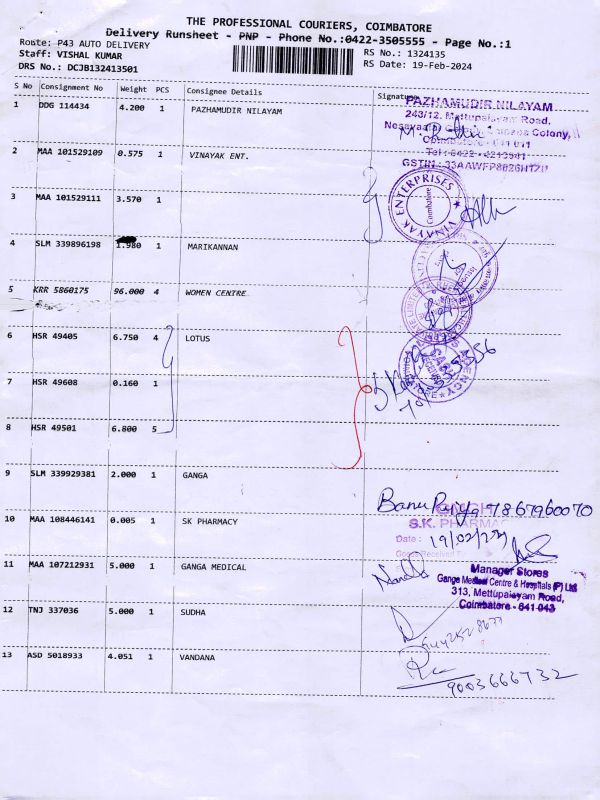 THE PROFESSIONAL COURIERS, COIMBATORE
Delivery Runsheet - PNP - Phone No.:0422-3505555 - Page No.:1
Route: P43 AUTO DELIVERY
RS No.: 1324135
Staff: VISHAL KUMAR
RS Date: 19-Feb-2024
DRS No.: DCJB132413501
S No Consignment No Weight PCS Consignee Details Signature
1 DDG 114434 4.200 1 PAZHAMUDIR NILAYAM
PAZHAMUDIR NILAYAM
243/12, Mettupalayam Road,
Colony,
Coimbatore - 641 011
Tel : 0422 - 4213941
GSTIN : 33AAWFP8026H1ZU
2 MAA 101529109 0.575 1 VINAYAK ENT.
VINAYAK ENTERPRISES
Coimbatore
3 MAA 101529111 3.570 1
4 SLM 339896198 1.980 1 MARIKANNAN
5 KRR 5860175 96.000 4 WOMEN CENTRE
6 HSR 49405 6.750 4 LOTUS
AGENCY
7 HSR 49608 0.160 1
8 HSR 49501 6.800 5
9 SLM 339929381 2.000 1 GANGA
Banu Priya 7867960070
10 MAA 108446141 0.005 1 SK PHARMACY
S.K. PHARMACY
Date : 19/02/24
Goods Received
11 MAA 107212931 5.000 1 GANGA MEDICAL
Manager Stores
Ganga Medical Centre & Hospitals (P) Ltd
313, Mettupalayam Road,
Coimbatore - 641 043
12 TNJ 337036 5.000 1 SUDHA
13 ASD 5018933 4.051 1 VANDANA
9003666732